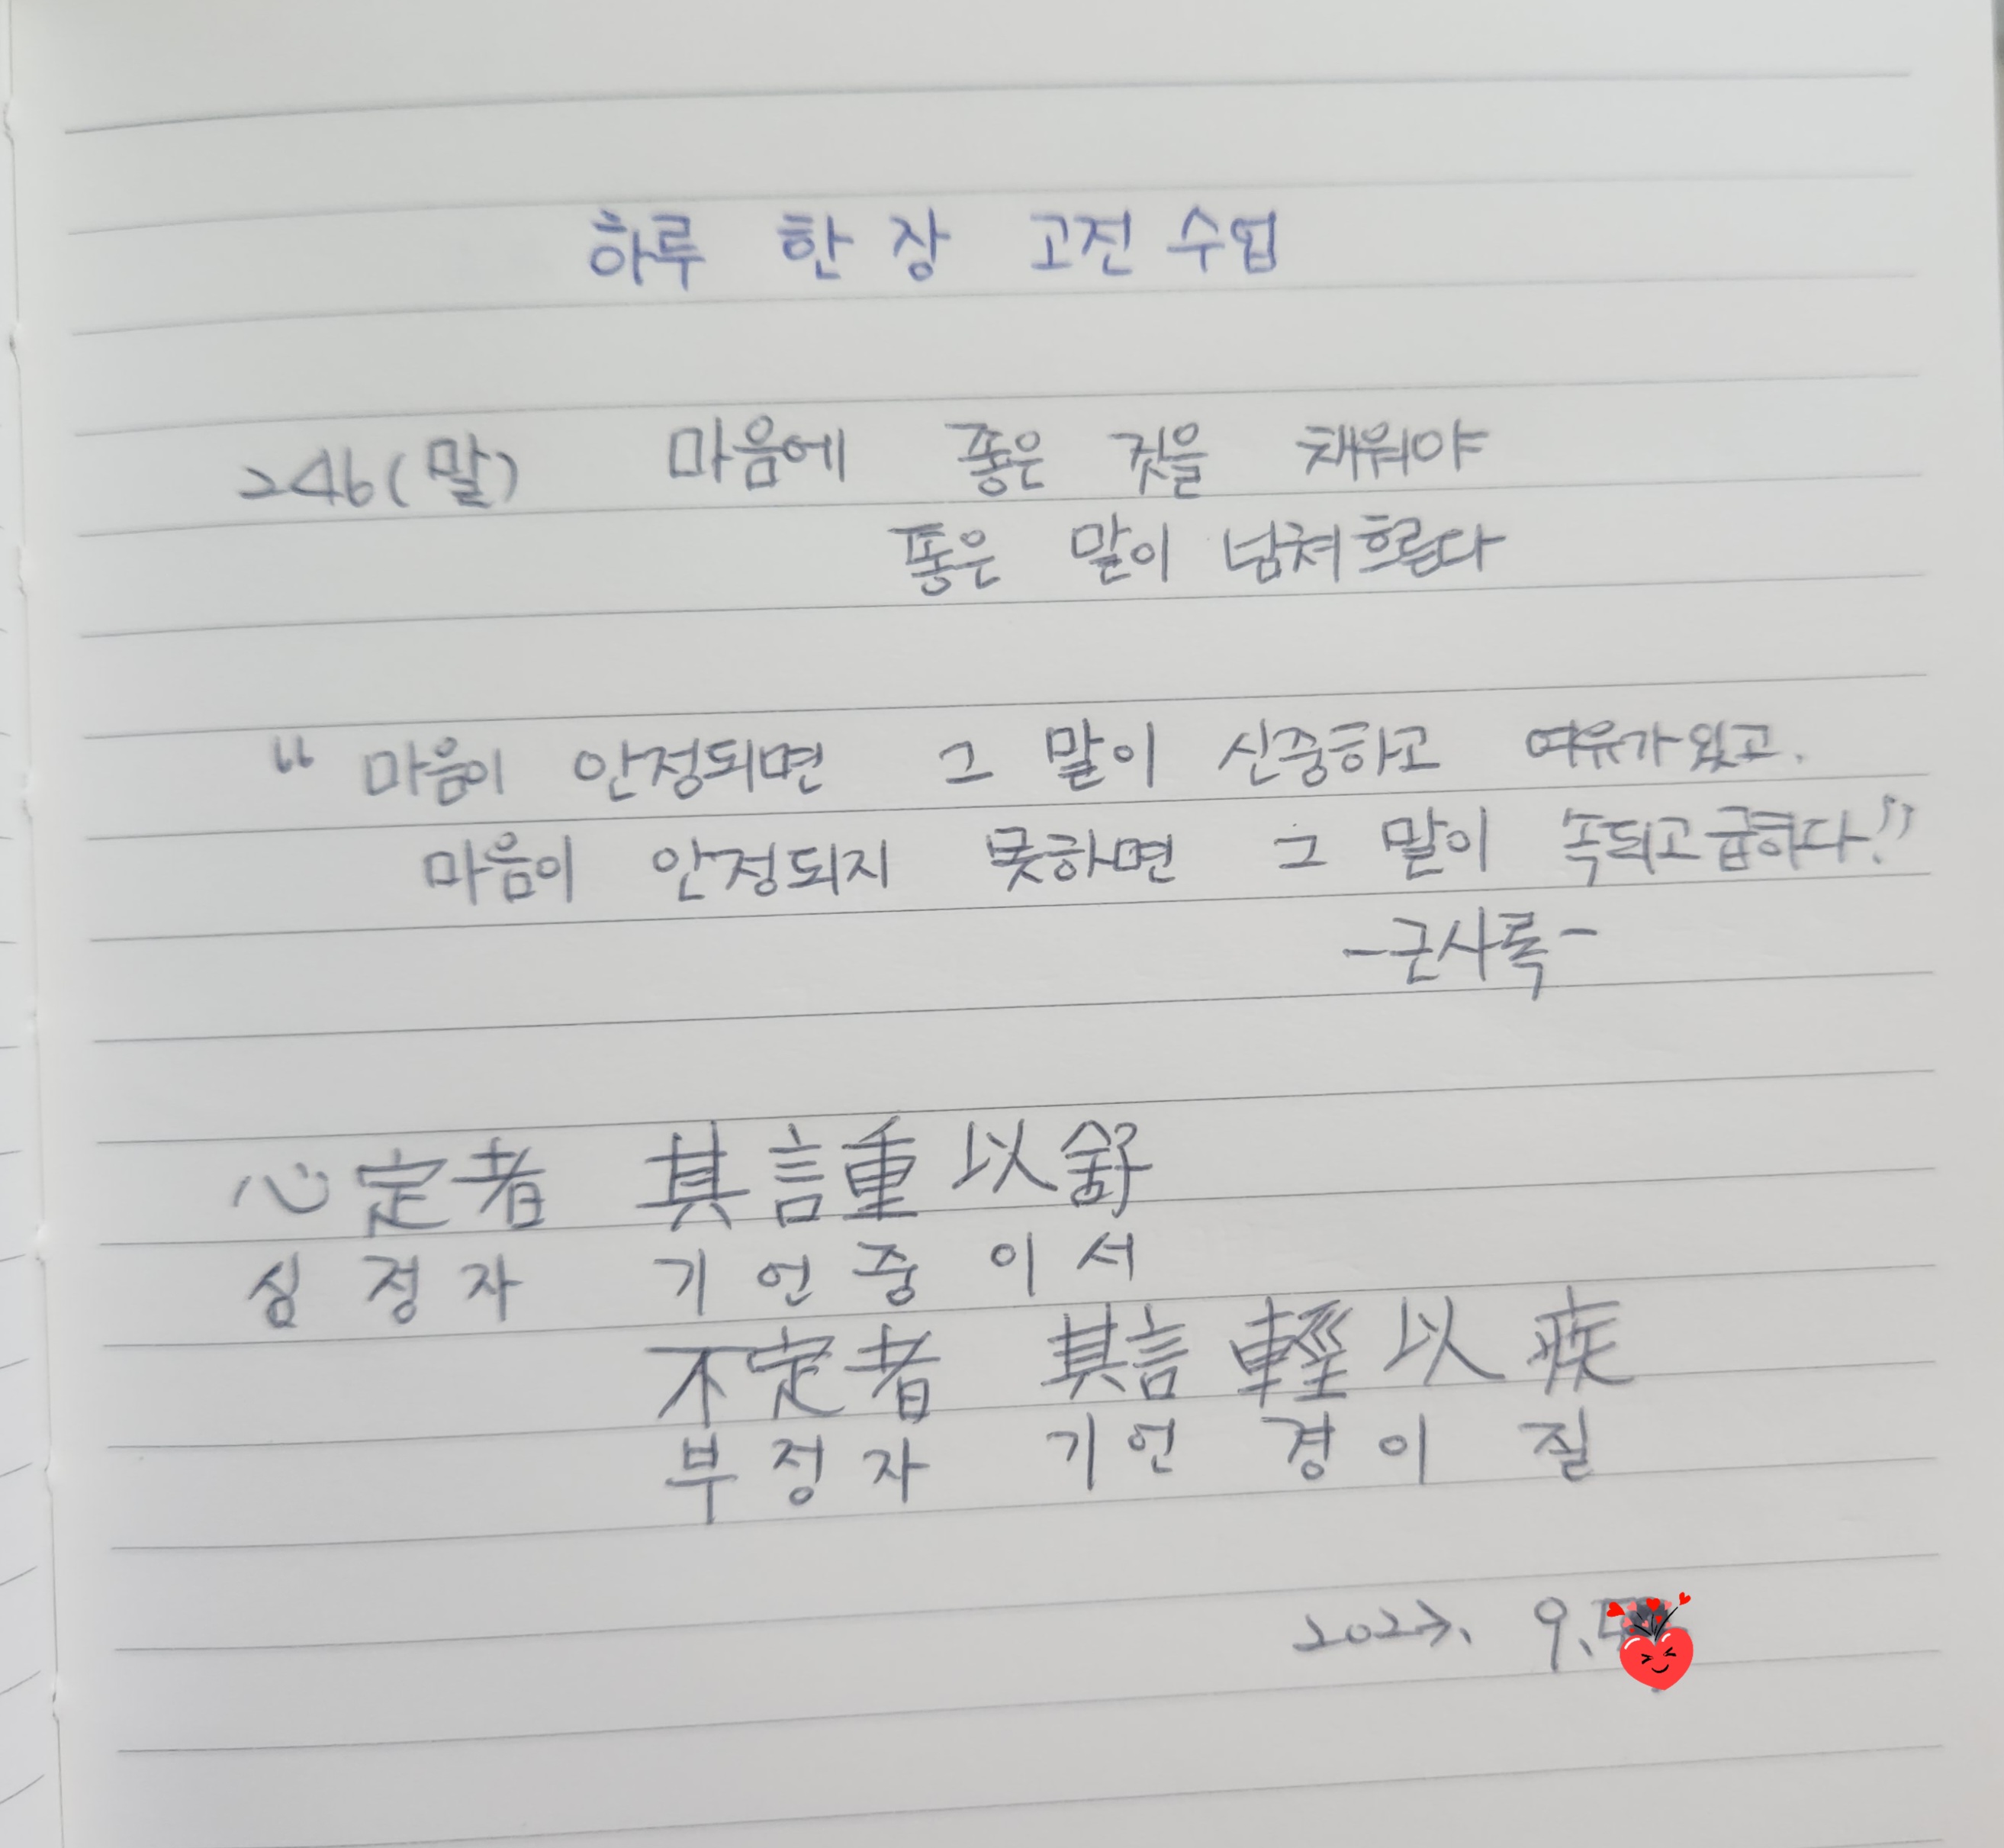 하루 한 장 고전 수업
246(말) 마음에 좋은 것을 채워야
좋은 말이 넘쳐흐른다
“ 마음이 안정되면 그 말이 신중하고 여유가 있고,
마음이 안정되지 못하면 그 말이 속되고 급하다.”
-근사록-
心定者 其言重以舒
심정자 기언중이서
不定者 其言輕以疾
부정자 기언 경이 질
2023. 9.